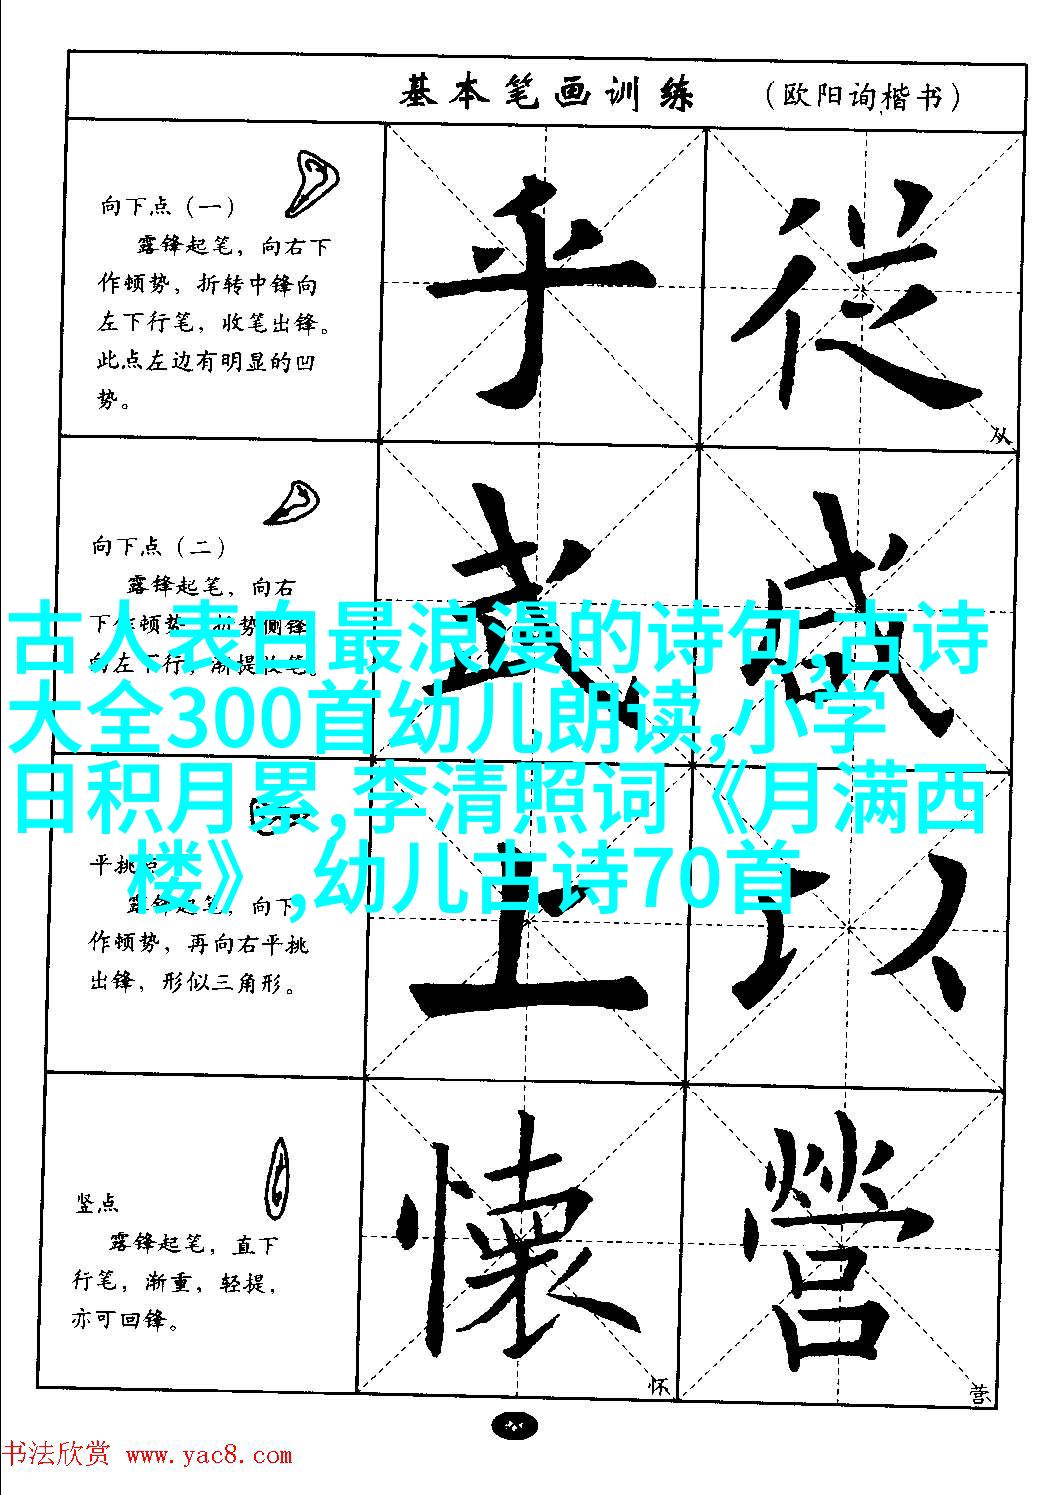 基本笔画训练 （欧阳询楷书）
向下点（一）
露锋起笔，向右下
作顿势，折转中锋向
左下行笔，收笔出锋。
此点左边有明显的凹
势。
乎 從
从
向下点（二）
露锋起笔，向右
下作顿势，折势侧锋
向左下行，渐提收笔。
武 感
古人表白最浪漫的诗句,古诗
大全300首幼儿朗读,小学
日积月累,李清照词《月满西
楼》,幼儿古诗70首
平挑点
露锋起笔，向下
作顿势，再向右平挑
出锋，形似三角形。
上 以
竖点
露锋起笔，直下
行笔，渐重，轻提，
亦可回锋。
懷 營
怀 营
书法欣赏 www.yac8.com